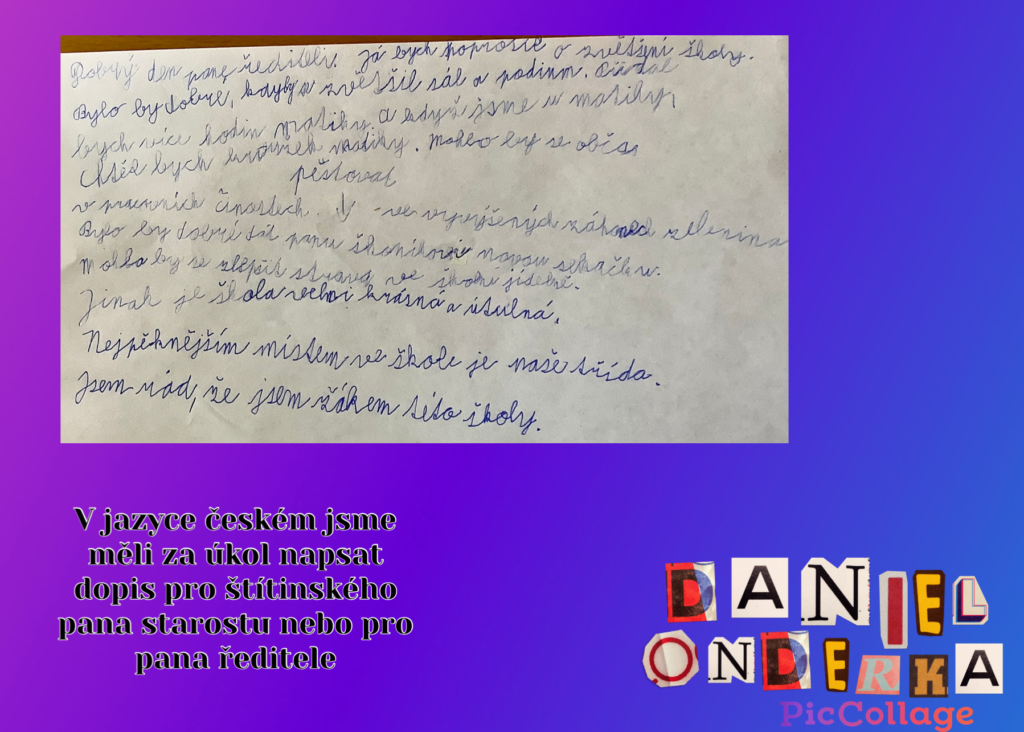 Dobrý den pane řediteli. Já bych poprosil o zvětšení školy.
Bylo by dobré, kdyby se zvětšil sál a podium.
bych více hodin matiky, a když jsme u matiky,
chtěl bych kroužek matiky. Mohlo by se občas
pěstovat
v pracovních činostech. ↓ - ve vyvýšených záhonech zelenina
Bylo by dobré dát panu školníkovi novou sekačku.
Mohla by se zlepšit strava ve školní jídelně.
Jinak je škola velmi krásná a útulná.
Nejpěknějším místem ve škole je naše třída.
Jsem rád, že jsem žákem této školy.
V jazyce českém jsme
měli za úkol napsat
dopis pro štítinského
pana starostu nebo pro
pana ředitele
DANIEL
ONDERKA
PicCollage